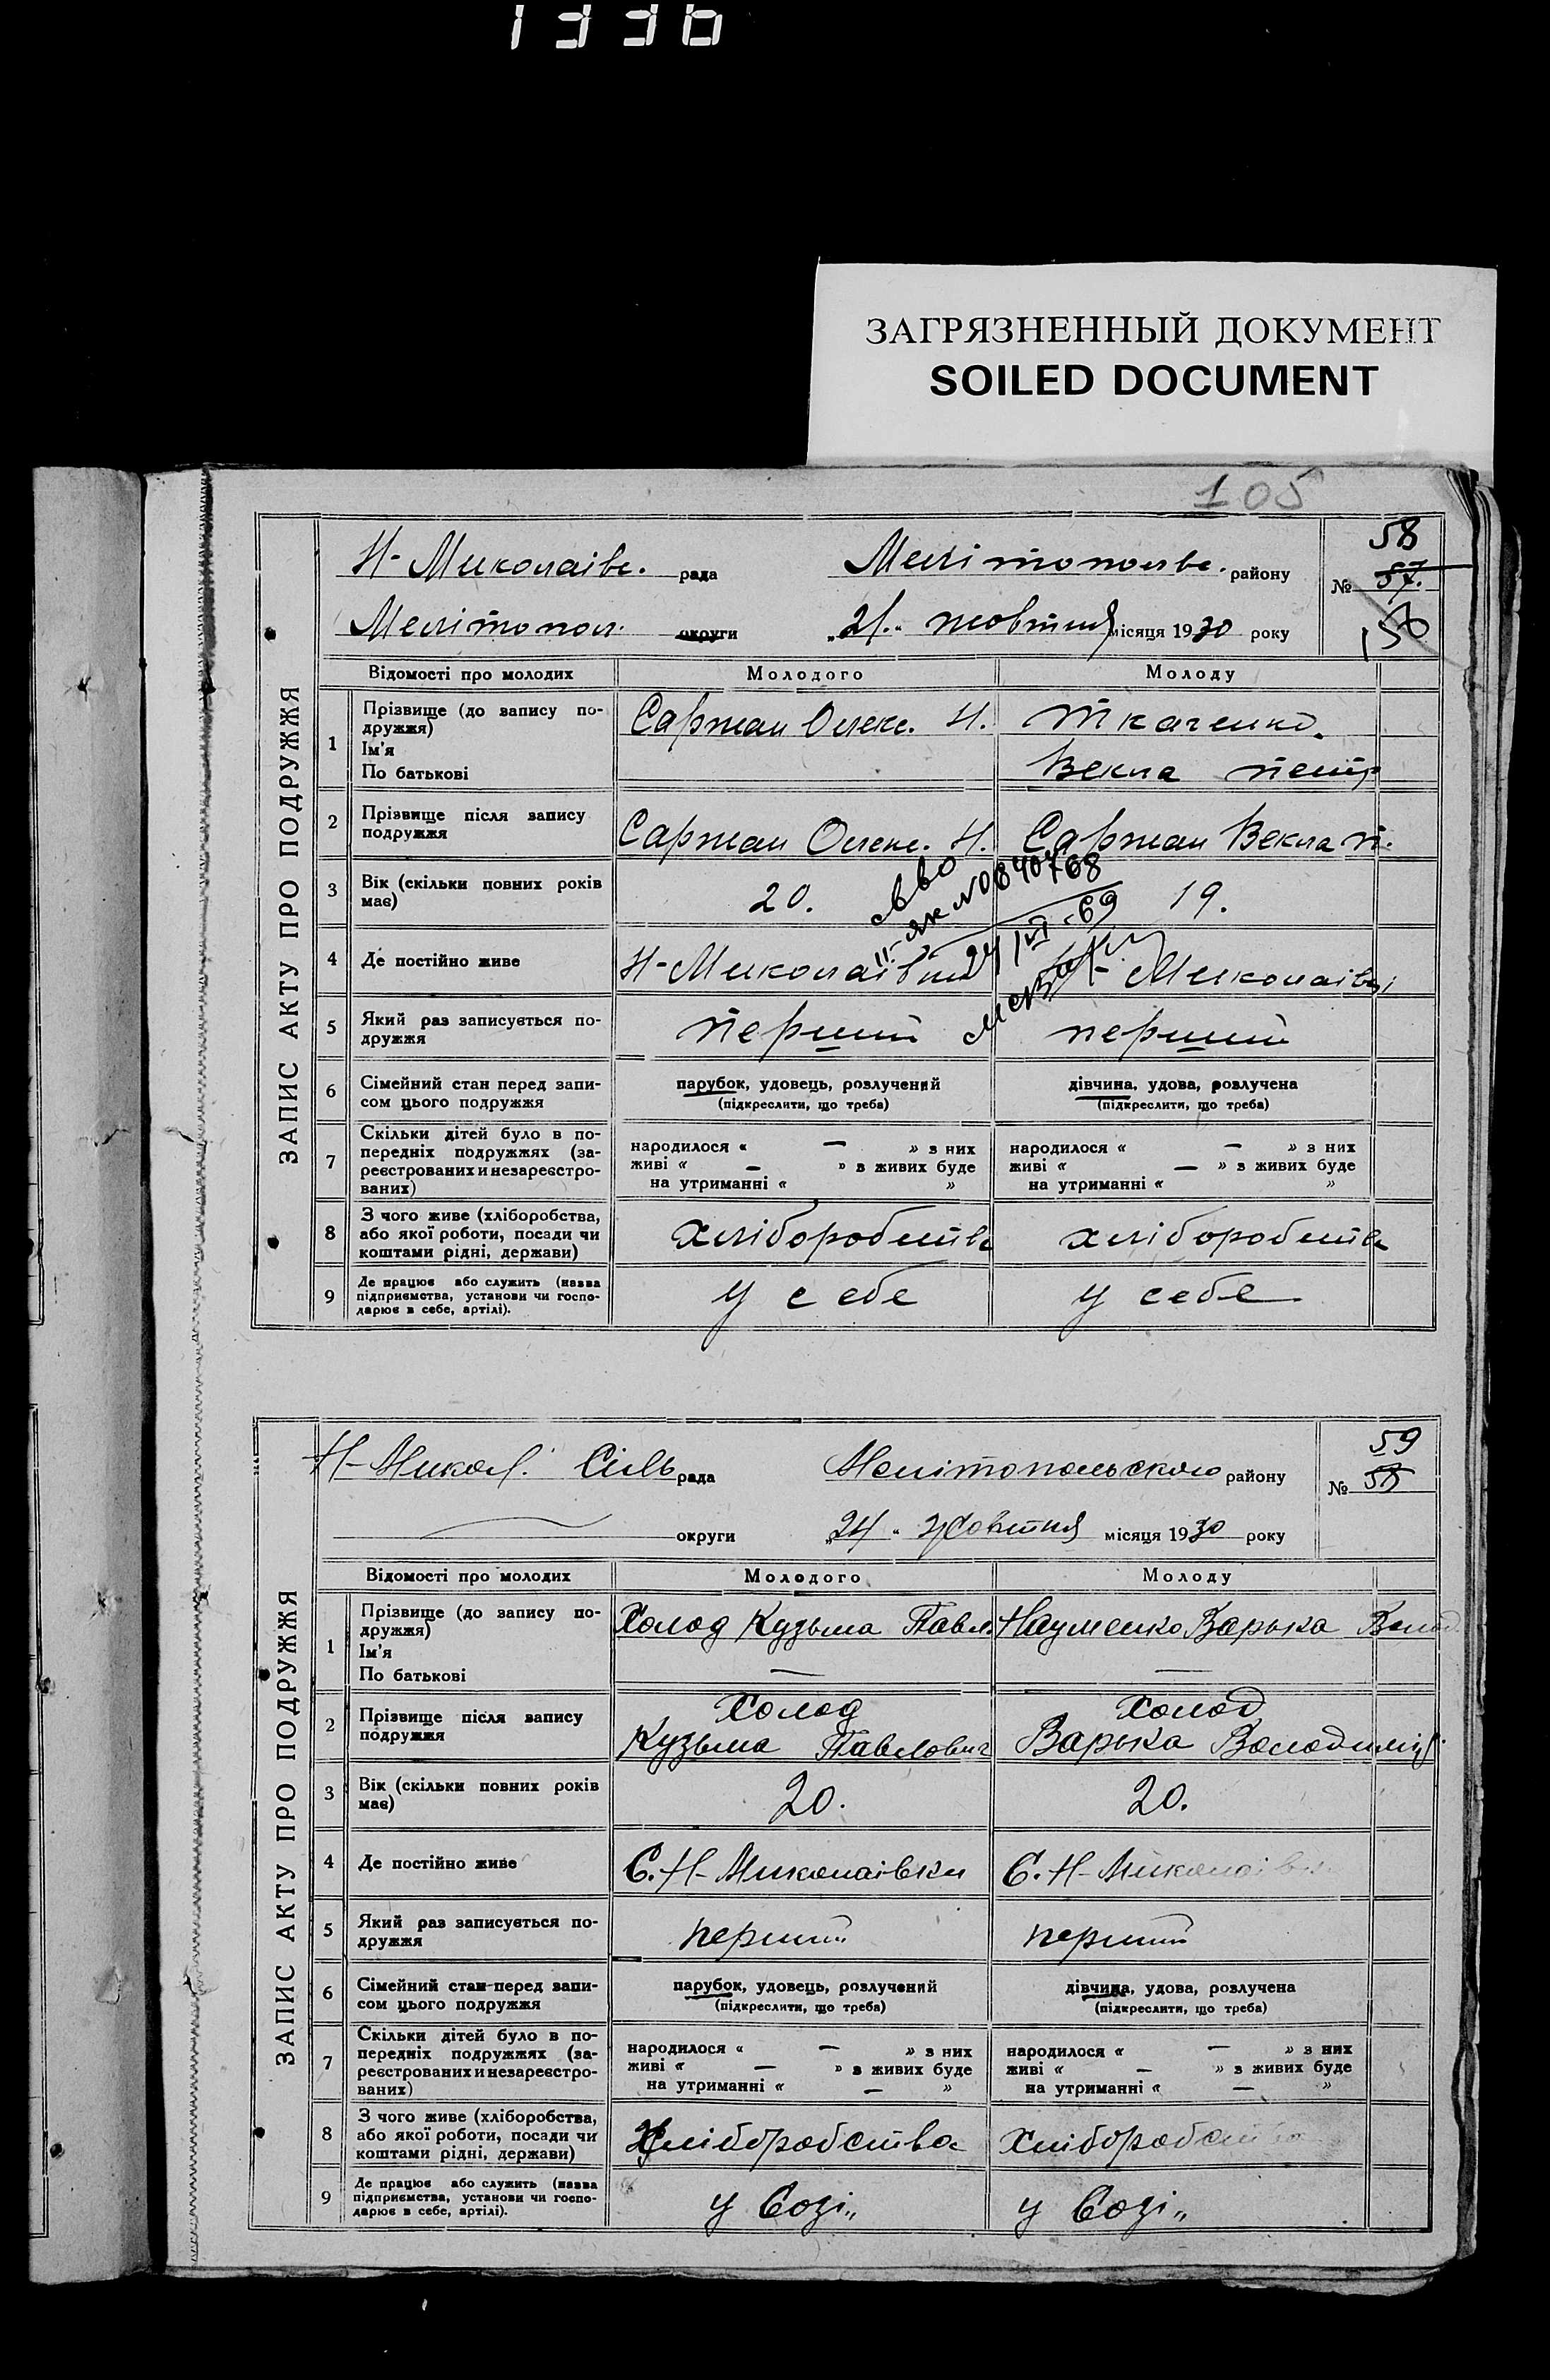 1336
ЗАГРЯЗНЕННЫЙ ДОКУМЕНТ
SOILED DOCUMENT
105
ЗАПИС АКТУ ПРО ПОДРУЖЖЯ
Н-Миколаівс. рада Мелітопольс. району № 57. 58
Мелітопол. округи „21.“ жовтня місяця 1930 року 158
Відомості про молодих Молодого Молоду
1 Прізвище (до запису по-
дружжя)
Ім'я
По батькові
Саржан Олекс. Н. Ткаченко.
Векла Петр
2 Прізвище після запису
подружжя
Саржан Олекс. Н. Саржан Векла П.
3 Вік (скільки повних років
має)
20. 19.
св во
II-ЯК № 0640768
24/VI-69
4 Де постійно живе Н-Миколаівци Н-Миколаівці
5 Який раз записується по-
дружжя
перший перший
6 Сімейний стан перед запи-
сом цього подружжя
парубок, удовець, розлучений дівчина, удова, розлучена
(підкреслити, що треба) (підкреслити, що треба)
7 Скільки дітей було в по-
передніх подружжях (за-
реєстрованих и незареєстро-
ваних)
народилося « — » з них народилося « — » з них
живі « — » з живих буде живі « — » з живих буде
на утриманні « » на утриманні « »
8 З чого живе (хліборобства,
або якої роботи, посади чи
коштами рідні, держави)
хліборобств хліборобств
9 Де працює або служить (назва
підприємства, установи чи госпо-
дарює в себе, артілі).
у себе у себе
ЗАПИС АКТУ ПРО ПОДРУЖЖЯ
Н-Микол. Сіль рада Мелітопольского району № 58 59
— округи „24“ Жовтня місяця 1930 року
Відомості про молодих Молодого Молоду
1 Прізвище (до запису по-
дружжя)
Ім'я
По батькові
Холод Кузьма Павл. Науменко Варька Волод.
— —
2 Прізвище після запису
подружжя
Холод Холод
Кузьма Павлович Варька Володимір.
3 Вік (скільки повних років
має)
20. 20.
4 Де постійно живе С. Н-Миколаівки С. Н-Миколаівки
5 Який раз записується по-
дружжя
перший перший
6 Сімейний стан перед запи-
сом цього подружжя
парубок, удовець, розлучений дівчина, удова, розлучена
(підкреслити, що треба) (підкреслити, що треба)
7 Скільки дітей було в по-
передніх подружжях (за-
реєстрованих и незареєстро-
ваних)
народилося « — » з них народилося « — » з них
живі « — » з живих буде живі « — » з живих буде
на утриманні « — » на утриманні « — »
8 З чого живе (хліборобства,
або якої роботи, посади чи
коштами рідні, держави)
Хліборобства Хліборобства
9 Де працює або служить (назва
підприємства, установи чи госпо-
дарює в себе, артілі).
у Созі„ у Созі„